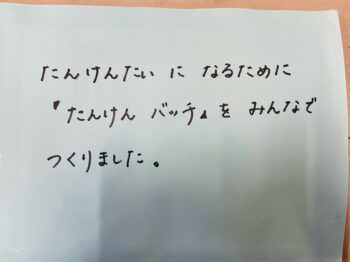 たんけんたい に なるために
『たんけん バッチ』を みんなで
つくりました。